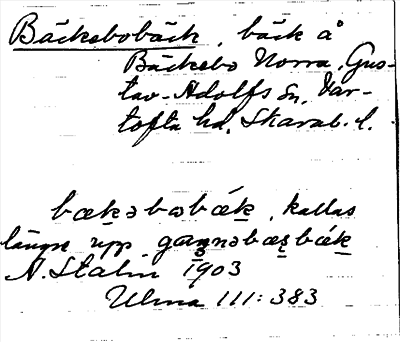 Bäckebobäck, bäck å
Bäckebo Norra, Gus-
tav-Adolfs sn, Var-
tofta hd, Skarab. l.
bækəbəbǽk, kallas
längre upp
A. Stalin 1903
Ulma 111:383